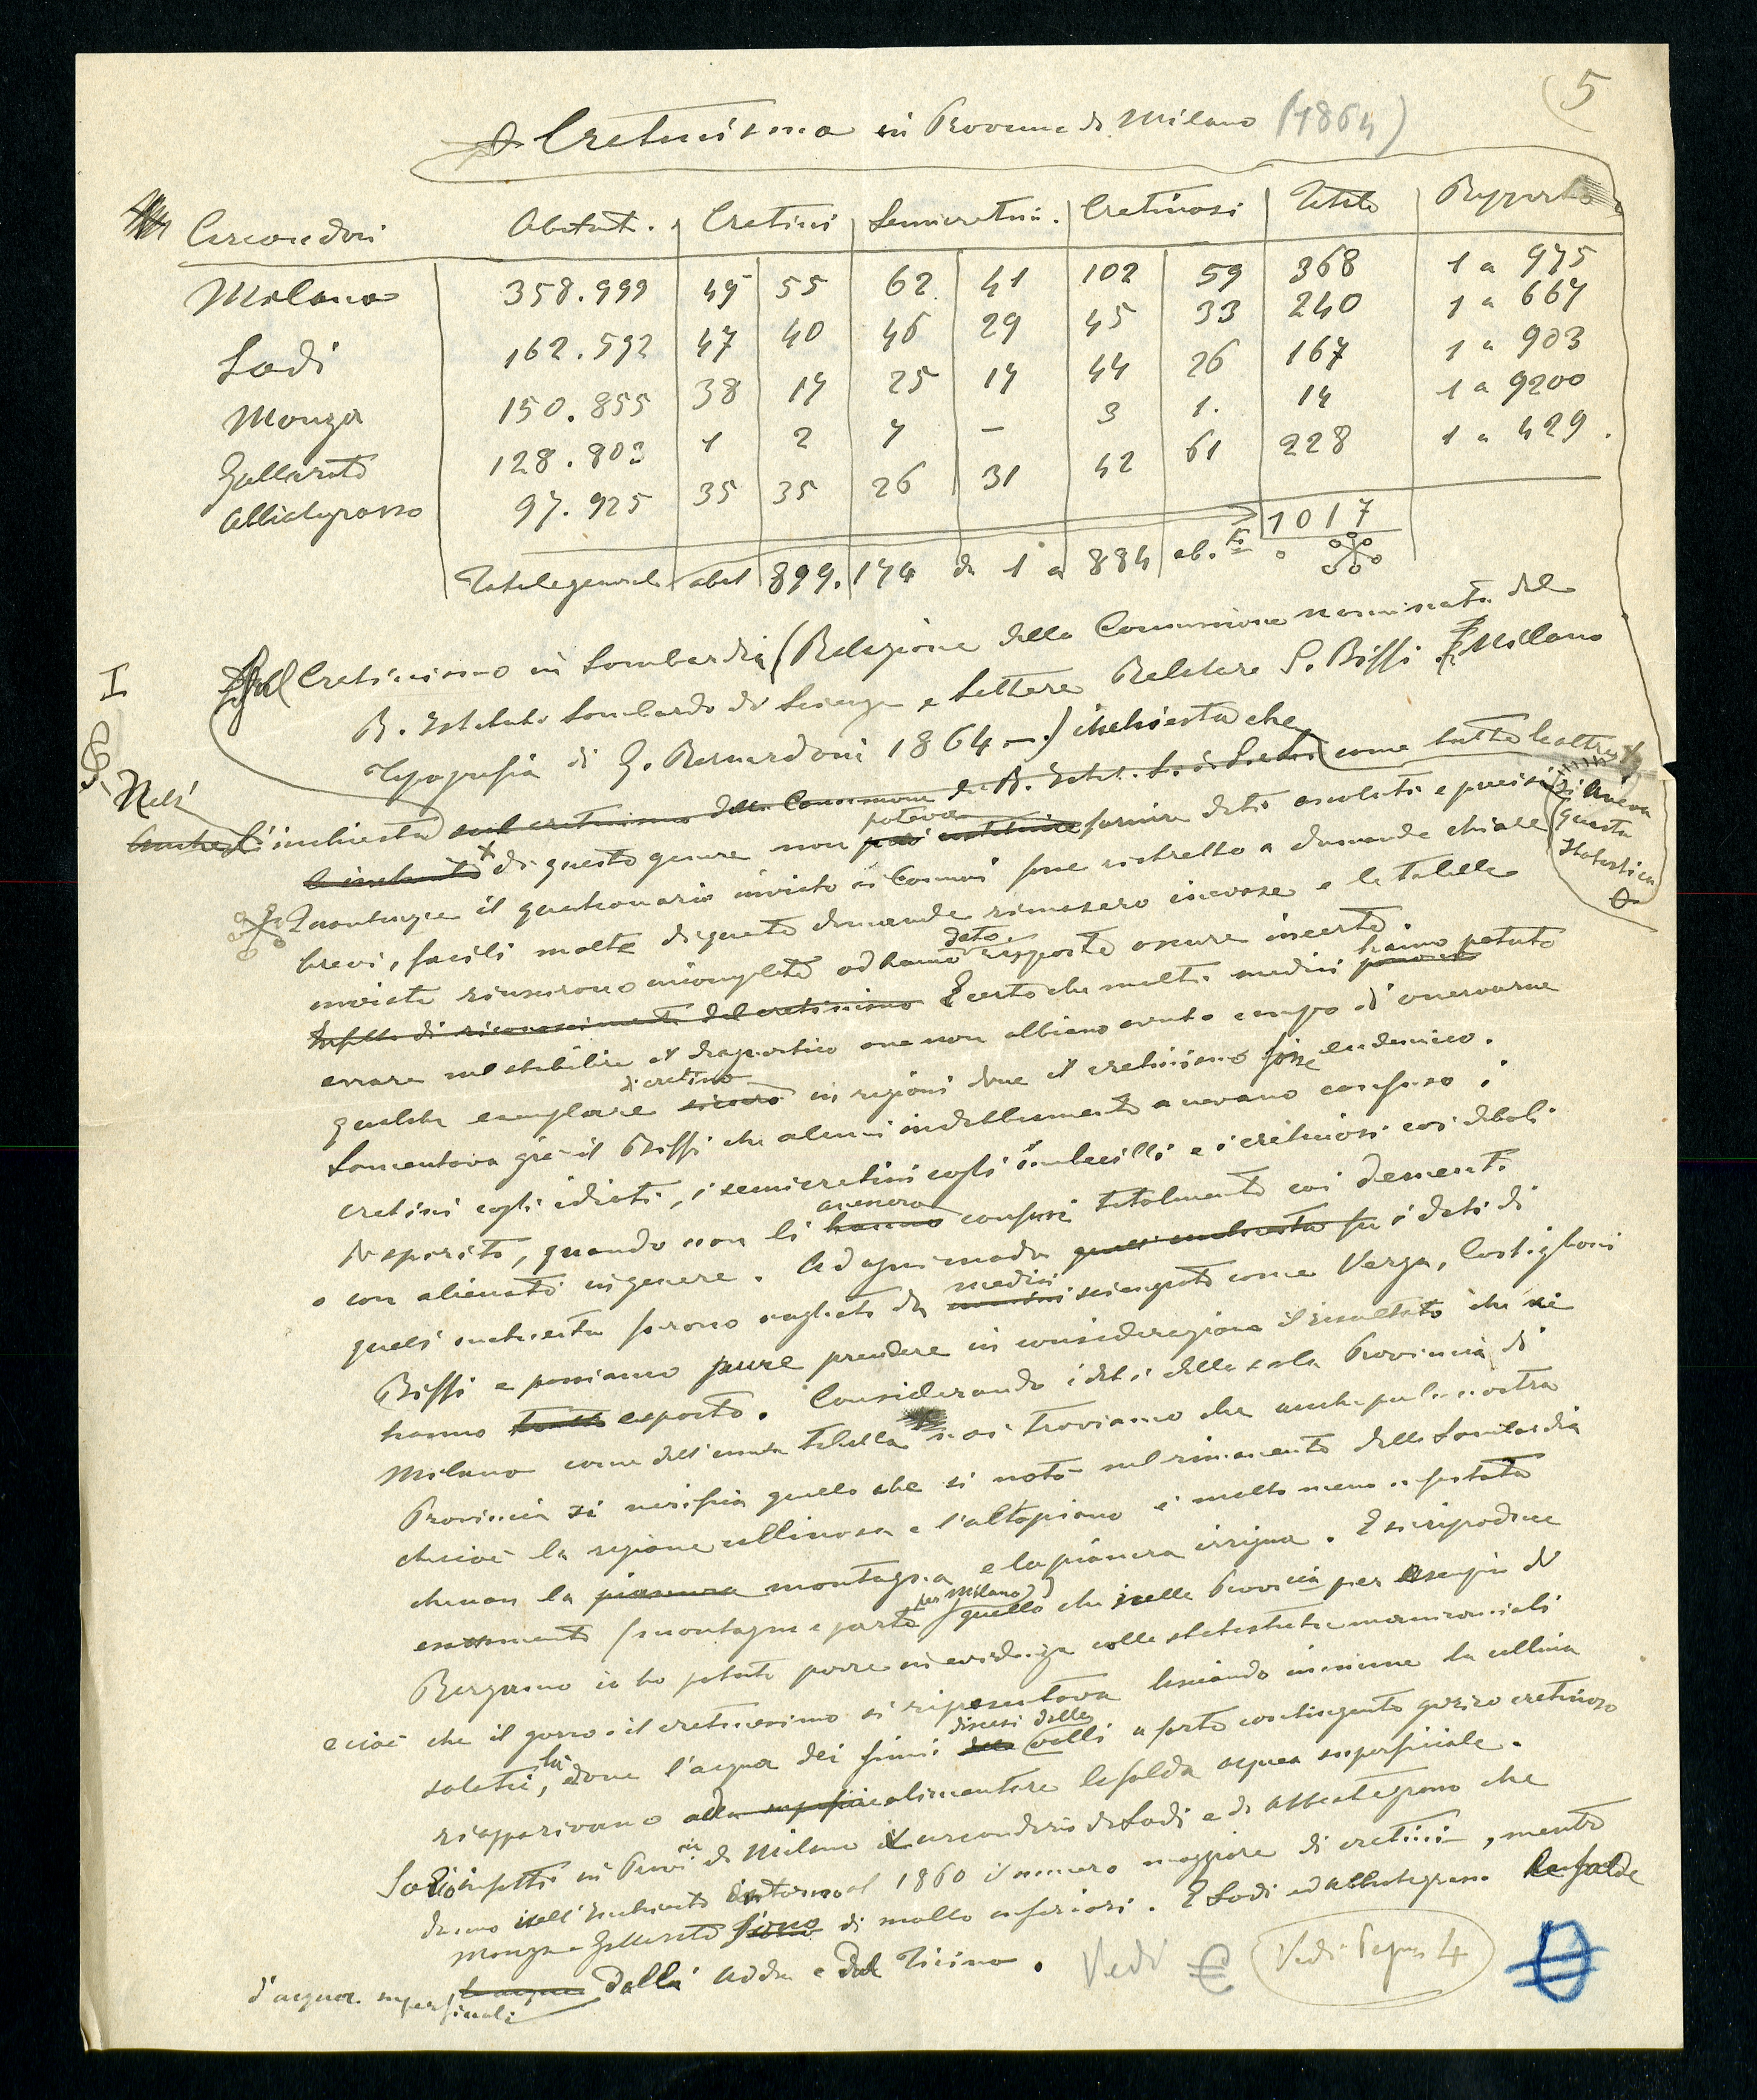 5
Cretinismo in Provincia di Milano (1864)
Circondari Abitant. Cretini Semicretini. Cretinosi Totale Rapporto
Milano 358.999 49 55 62 41 102 59 368 1 a 975
Lodi 162.592 47 40 46 29 45 33 240 1 a 667
Monza 150.855 38 17 25 17 44 26 167 1 a 903
Gallarate 128.803 1 2 7 — 3 1. 14 1 a 9200
Abbiategrasso 97.925 35 35 26 31 42 61 228 1 a 429.
1017
Totale generale abit 899.174 da 1 a 884 ab.ti
I Sul Cretinismo in Lombardia (Relazione della Commissione nominata dal
R. Istituto Lombardo di Scienze e Lettere Relatore S. Biffi Milano
Tipografia di G. Bernardoni 1864 —) inchiesta che
Nell' come tutte le altre
Anche l'inchiesta sul cretinismo della Commissione del R. Istit. L. di S. e Lett.
poteva
di questo genere non può costituire fornire dati assoluti e precisi si aveva questa statistica
Quantunque il questionario inviato ai Comuni fosse ristretto a domande chiare
brevi, facili molte di queste domande rimasero inevase e le tabelle
dato
inviate riuscirono incomplete od hanno risposte oscure incerte.
hanno potuto
di riconoscimento del cretinismo È certo che molti medici possono
errare nel stabilire il diagnostico ove non abbiano avuto campo di osservarne
di cretino
qualche esemplare sicuro in regioni dove il cretinismo fosse endemico.
Lamentava già il Biffi che alcuni indebitamente avevano confuso i
cretini cogli idioti, i semicretini cogli imbecilli e i cretinosi coi deboli
avevano
di spirito, quando non li hanno confusi totalmente coi dementi
o con alienati in genere. Ad ogni modo quell'inchiesta fu i dati di
medici
quell'inchiesta furono vagliati da uomini scienziati come Verga, Castiglioni
Biffi e possiamo pure prendere in considerazione il risultato che ne
hanno tratto esposto. Considerando i dati della sola Provincia di
Milano come dall'unita tabella noi troviamo che anche per la nostra
Provincia si verifica quello che si notò nel rimanente della Lombardia
che cioè la regione collinosa e l'altopiano è molto meno infestata
che non la pianura montagna e la pianura irrigua. E si riproduce
per Milano)
esattamente (montagna a parte quello che nella Provincia per esempio di
Bergamo io ho potuto porre in evidenza colle statistiche manicomiali
e cioè che il gozzo e il cretinesimo si ripresentava lasciando immune la collina
là discesi dalle
soletti, dove l'acqua dei fiumi delle valli a forte contingente gozzo cretinoso
riapparivano alla superficie alimentare la falda acquea superficiale.
Sono infatti in Provincia di Milano i circondari di Lodi e di Abbiategrasso che
danno nell'Inchiesta intorno al 1860 il numero maggiore di cretini, mentre
Monza e Gallarate sono di molto inferiori. E Lodi ed Abbiategrasso le falde
d'acqua superficiali le acque dalla Adda e dal Ticino. Vedi € Vedi Pagina 4